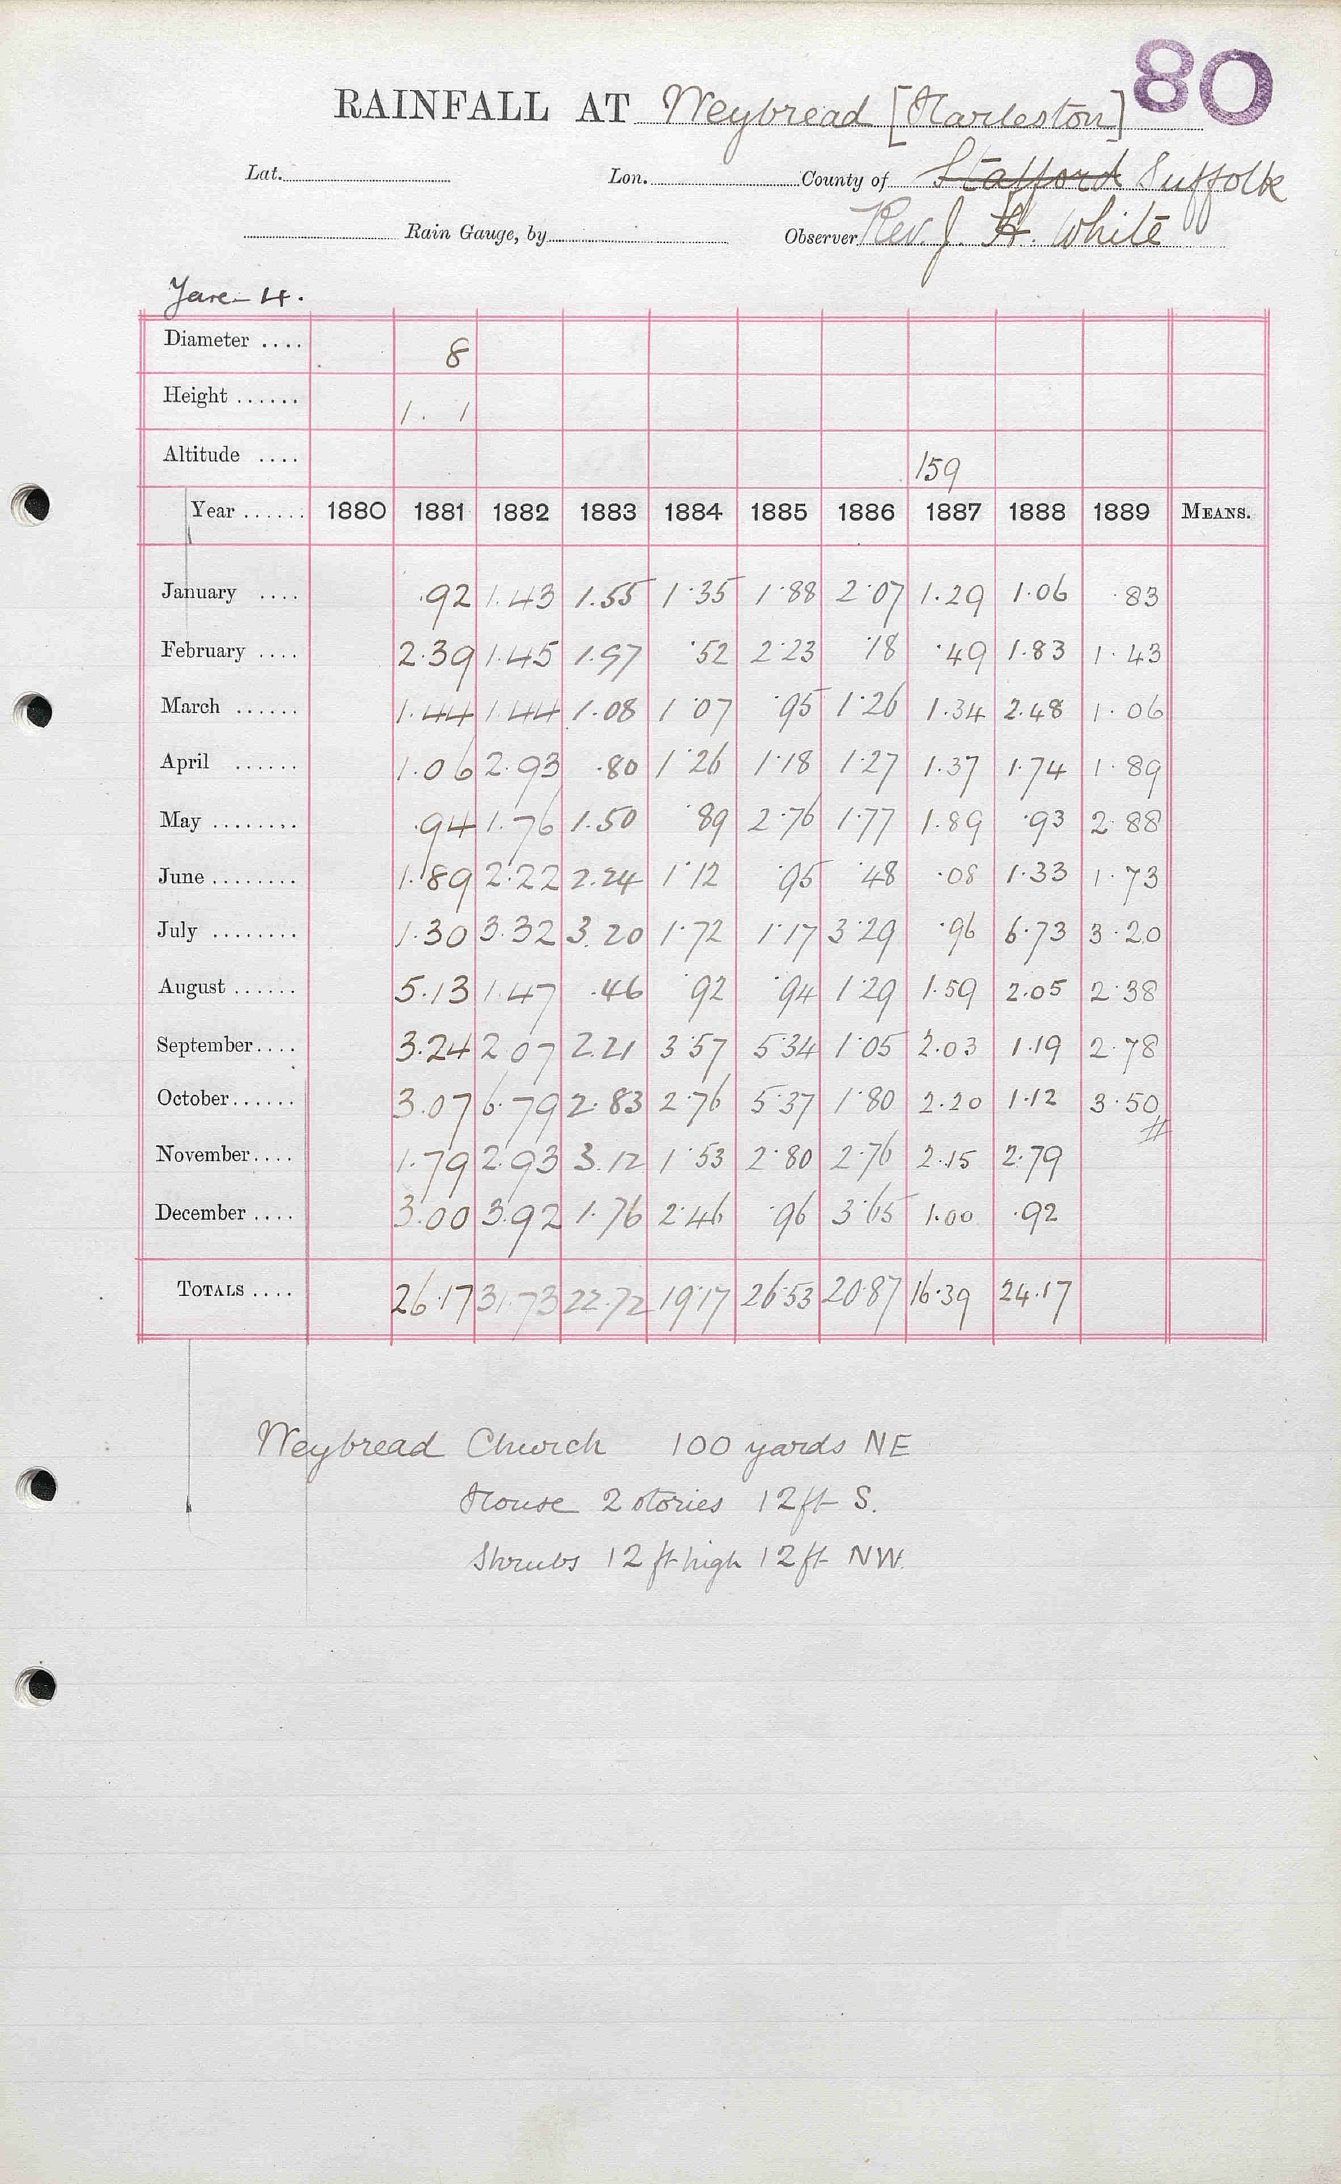 80
RAINFALL AT Weybread [Harleston]
Lat. Lon. County of Stafford Suffolk
Rain Gauge, by Observer Rev. J. H. White
Yare - 4.
Diameter .... 8
Height ...... 1. 1
Altitude .... 159
Year ...... 1880 1881 1882 1883 1884 1885 1886 1887 1888 1889 MEANS.
January .... .92 1.43 1.55 1.35 1.88 2.07 1.29 1.06 .83
February .... 2.39 1.45 1.97 .52 2.23 .18 .49 1.83 1.43
March ...... 1.44 1.44 1.08 1.07 .95 1.26 1.34 2.48 1.06
April ...... 1.06 2.93 .80 1.26 1.18 1.27 1.37 1.74 1.89
May ........ .94 1.76 1.50 .89 2.76 1.77 1.89 .93 2.88
June ........ 1.89 2.22 2.24 1.12 .95 .48 .08 1.33 1.73
July ........ 1.30 3.32 3.20 1.72 1.17 3.29 .96 6.73 3.20
August ...... 5.13 1.47 .46 .92 .94 1.29 1.59 2.05 2.38
September .... 3.24 2.07 2.21 3.57 5.34 1.05 2.03 1.19 2.78
October ...... 3.07 6.79 2.83 2.76 5.37 1.80 2.20 1.12 3.50
November .... 1.79 2.93 3.12 1.53 2.80 2.76 2.15 2.79
December .... 3.00 3.92 1.76 2.46 .96 3.65 1.00 .92
TOTALS .... 26.17 31.73 22.72 19.17 26.53 20.87 16.39 24.17
Weybread Church 100 yards NE
House 2 stories 12 ft S.
Shrubs 12 ft high 12 ft NW.